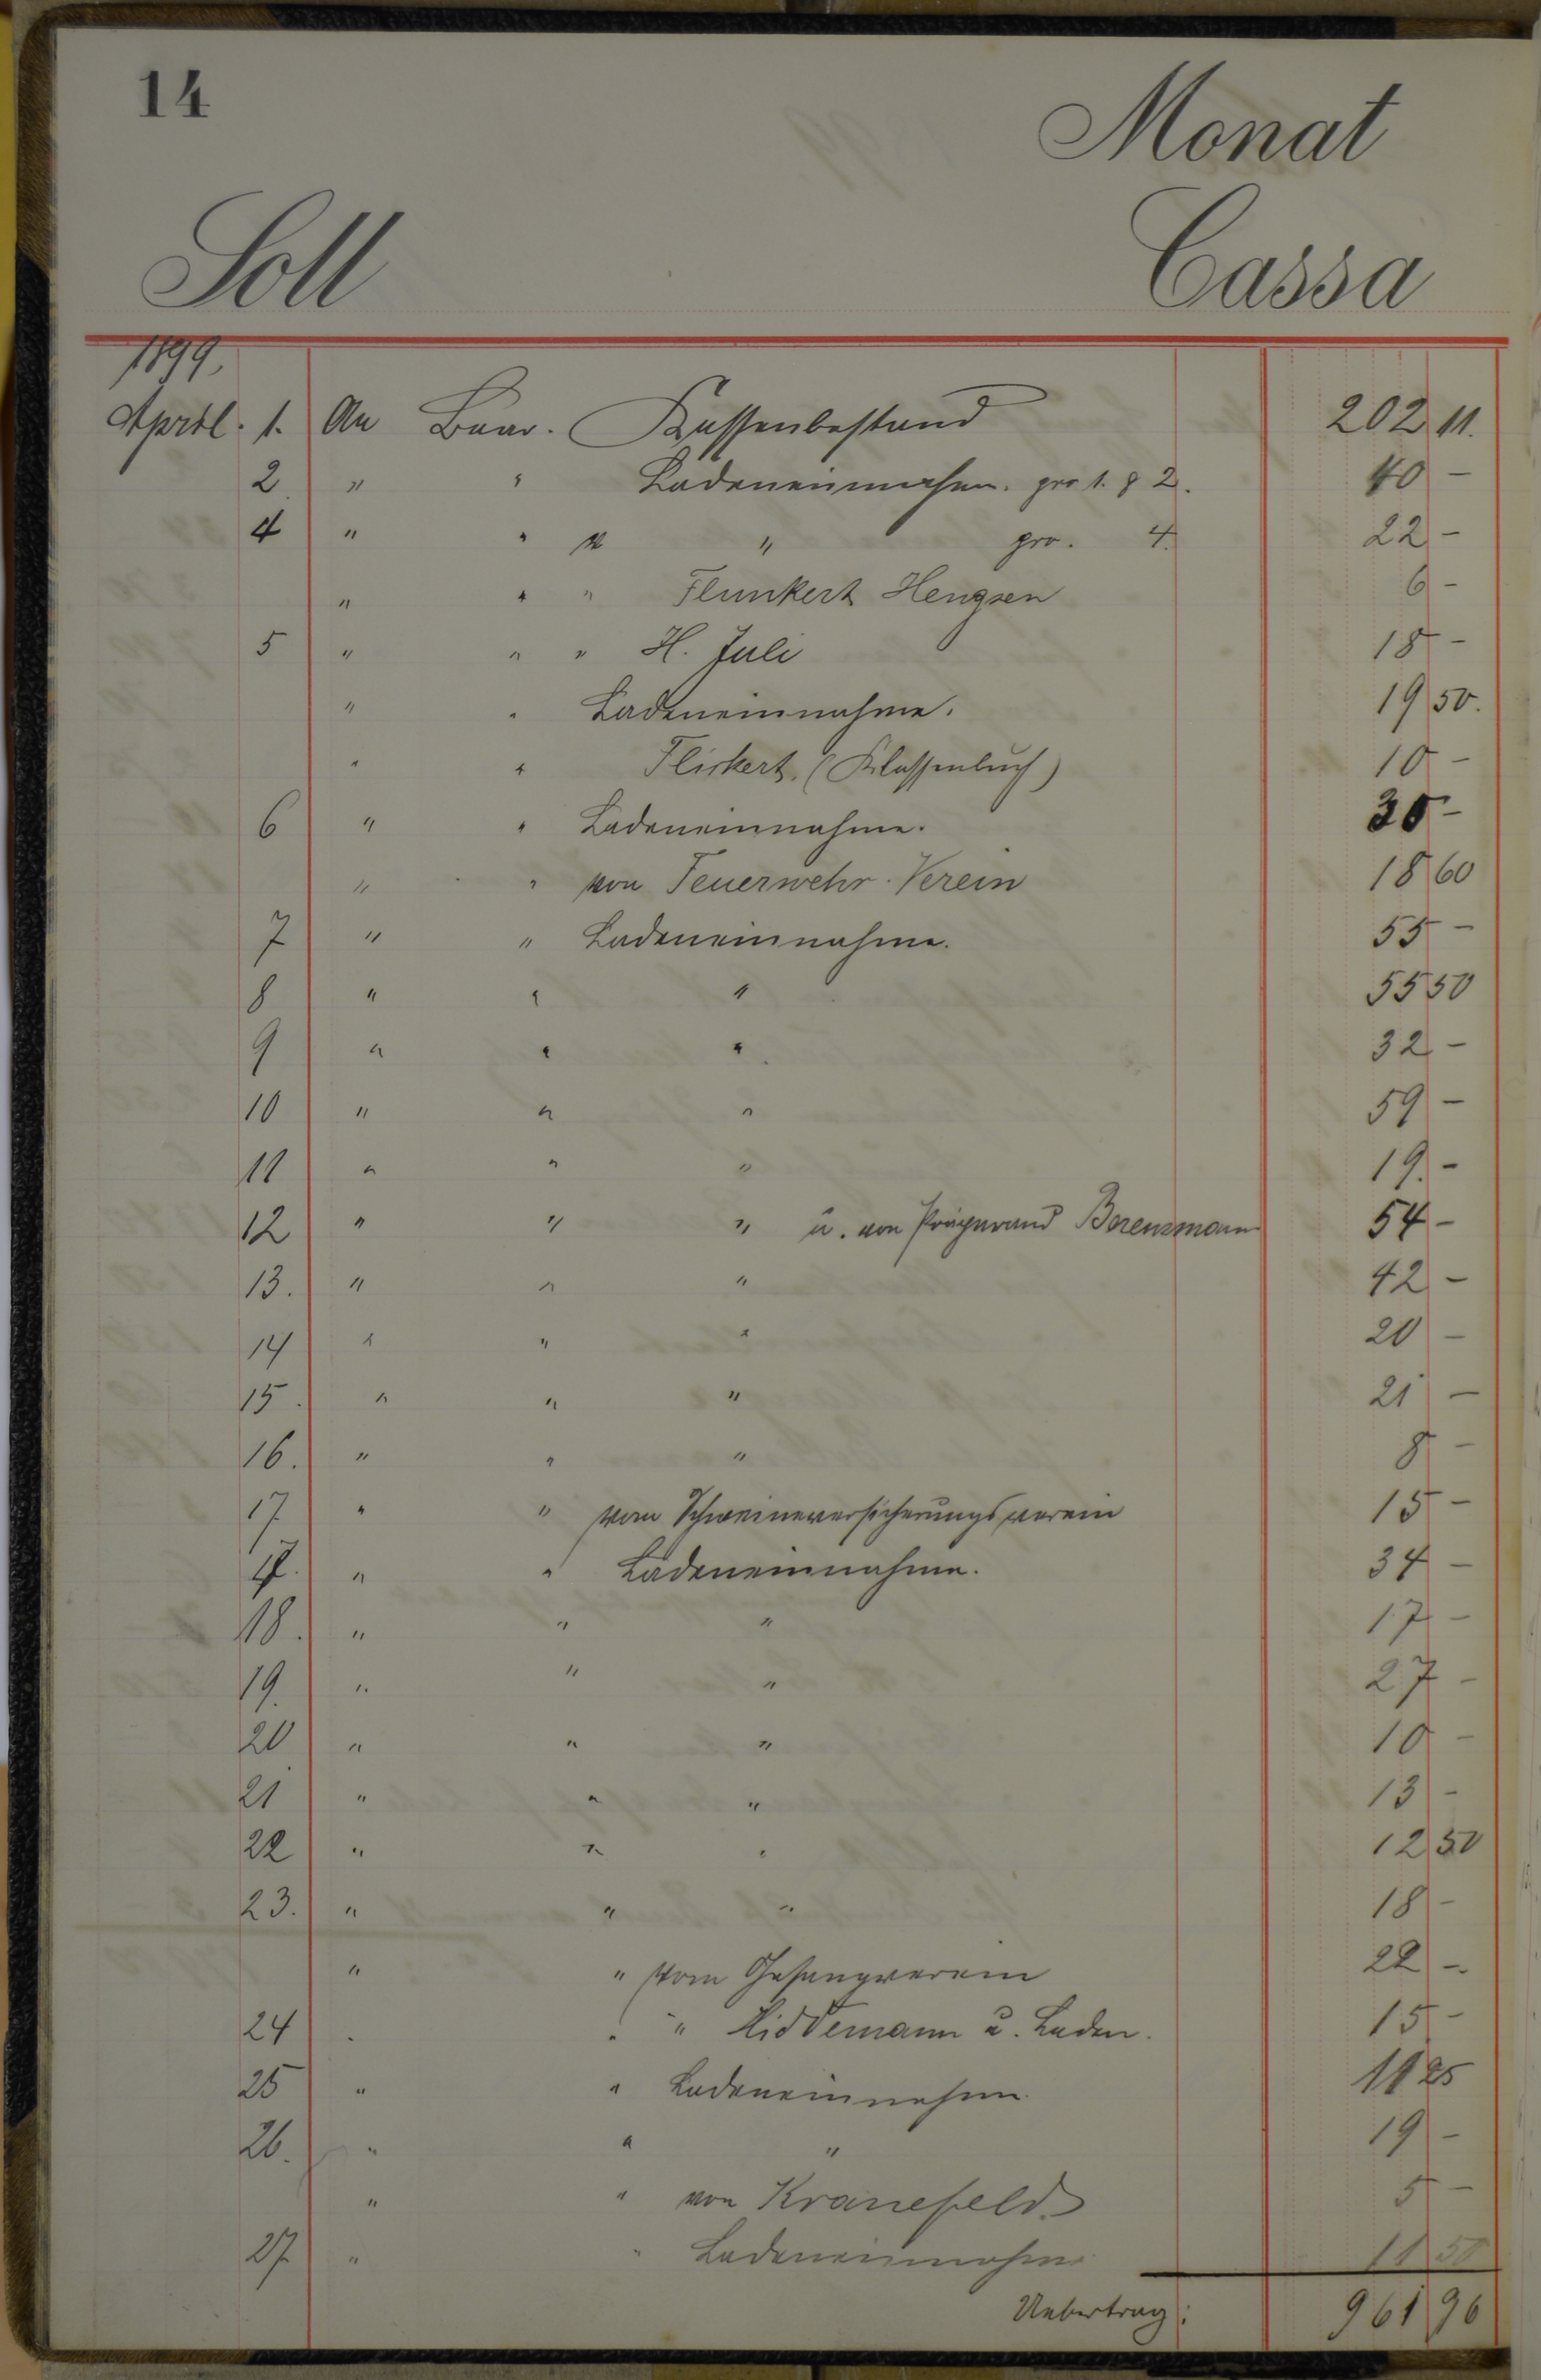 14
Monat
Soll
Cassa
1899.
April. 1. An Baar. Kassenbestand 202 11.
2. " " Ladeneinnahm. pro 1. & 2. 40 -
4 " " " " pro. 4. 22 -
" " " Flunkert Hengsen 6 -
5 " " " H. Juli 18 -
" " Ladeneinnahme. 19 50.
" " Flickert. (Klassenbuch) 10 -
6 " " Ladeneinnahme. 30 -
" " von Feuerwehr-Verein 18 60
7 " " Ladeneinnahme. 55 -
8 " " " 55 50
9 " " " 32 -
10 " " " 59 -
11 " " " 19. -
12 " " " u. von 54 -
13. " " " 42 -
14 " " " 20 -
15. " " " 21 -
16. " " " 8 -
17 " " vom Schweineversicherungsverein 15 -
17. " " Ladeneinnahme. 34 -
18. " " " 17 -
19. " " " 27 -
20 " " " 10 -
21 " " " 13 -
22 " " " 12 50
23. " " " 18 -
" " vom Gesangverein 22 -
24 " " " u. Laden. 15 -
25 " " Ladeneinnahm 11 25
26. " " " 19 -
" " von Kranefeld. 5 -
27. " " Ladeneinnahme 11 50
Uebertrag: 961 96